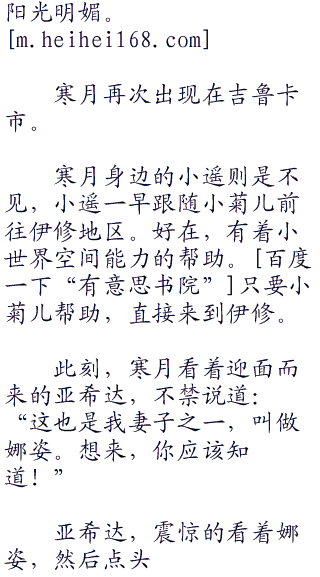 阳光明媚。
[m.heihei168.com]
寒月再次出现在吉鲁卡
市。
寒月身边的小遥则是不
见，小遥一早跟随小菊儿前
往伊修地区。好在，有着小
世界空间能力的帮助。[百度
一下“有意思书院”]只要小
菊儿帮助，直接来到伊修。
此刻，寒月看着迎面而
来的亚希达，不禁说道：
“这也是我妻子之一，叫做
娜姿。想来，你应该知
道！”
亚希达，震惊的看着娜
姿，然后点头